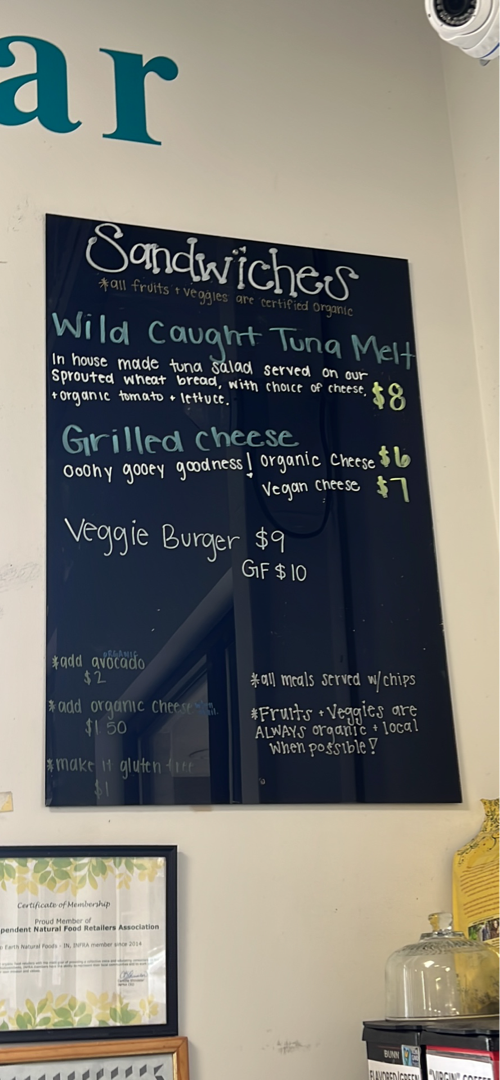 ar
Sandwiches
*all fruits + veggies are certified organic
Wild Caught Tuna Melt
In house made tuna salad served on our
sprouted wheat bread, with choice of cheese,
+organic tomato + lettuce.
$8
Grilled cheese
Ooohy gooey goodness! organic Cheese $6
Vegan cheese $7
Veggie Burger $9
GF $10
ORGANIC
*add avocado
$2
*add organic cheese
$1.50
*make it gluten free
$1
*all meals served w/chips
*Fruits + Veggies are
ALWAYS organic + local
when possible!
Certificate of Membership
Proud Member of
pendent Natural Food Retailers Association
Earth Natural Foods - IN, INFRA member since 2014
BUNN
FLAVORED/GREEN
"VIRGIN" COFFEE